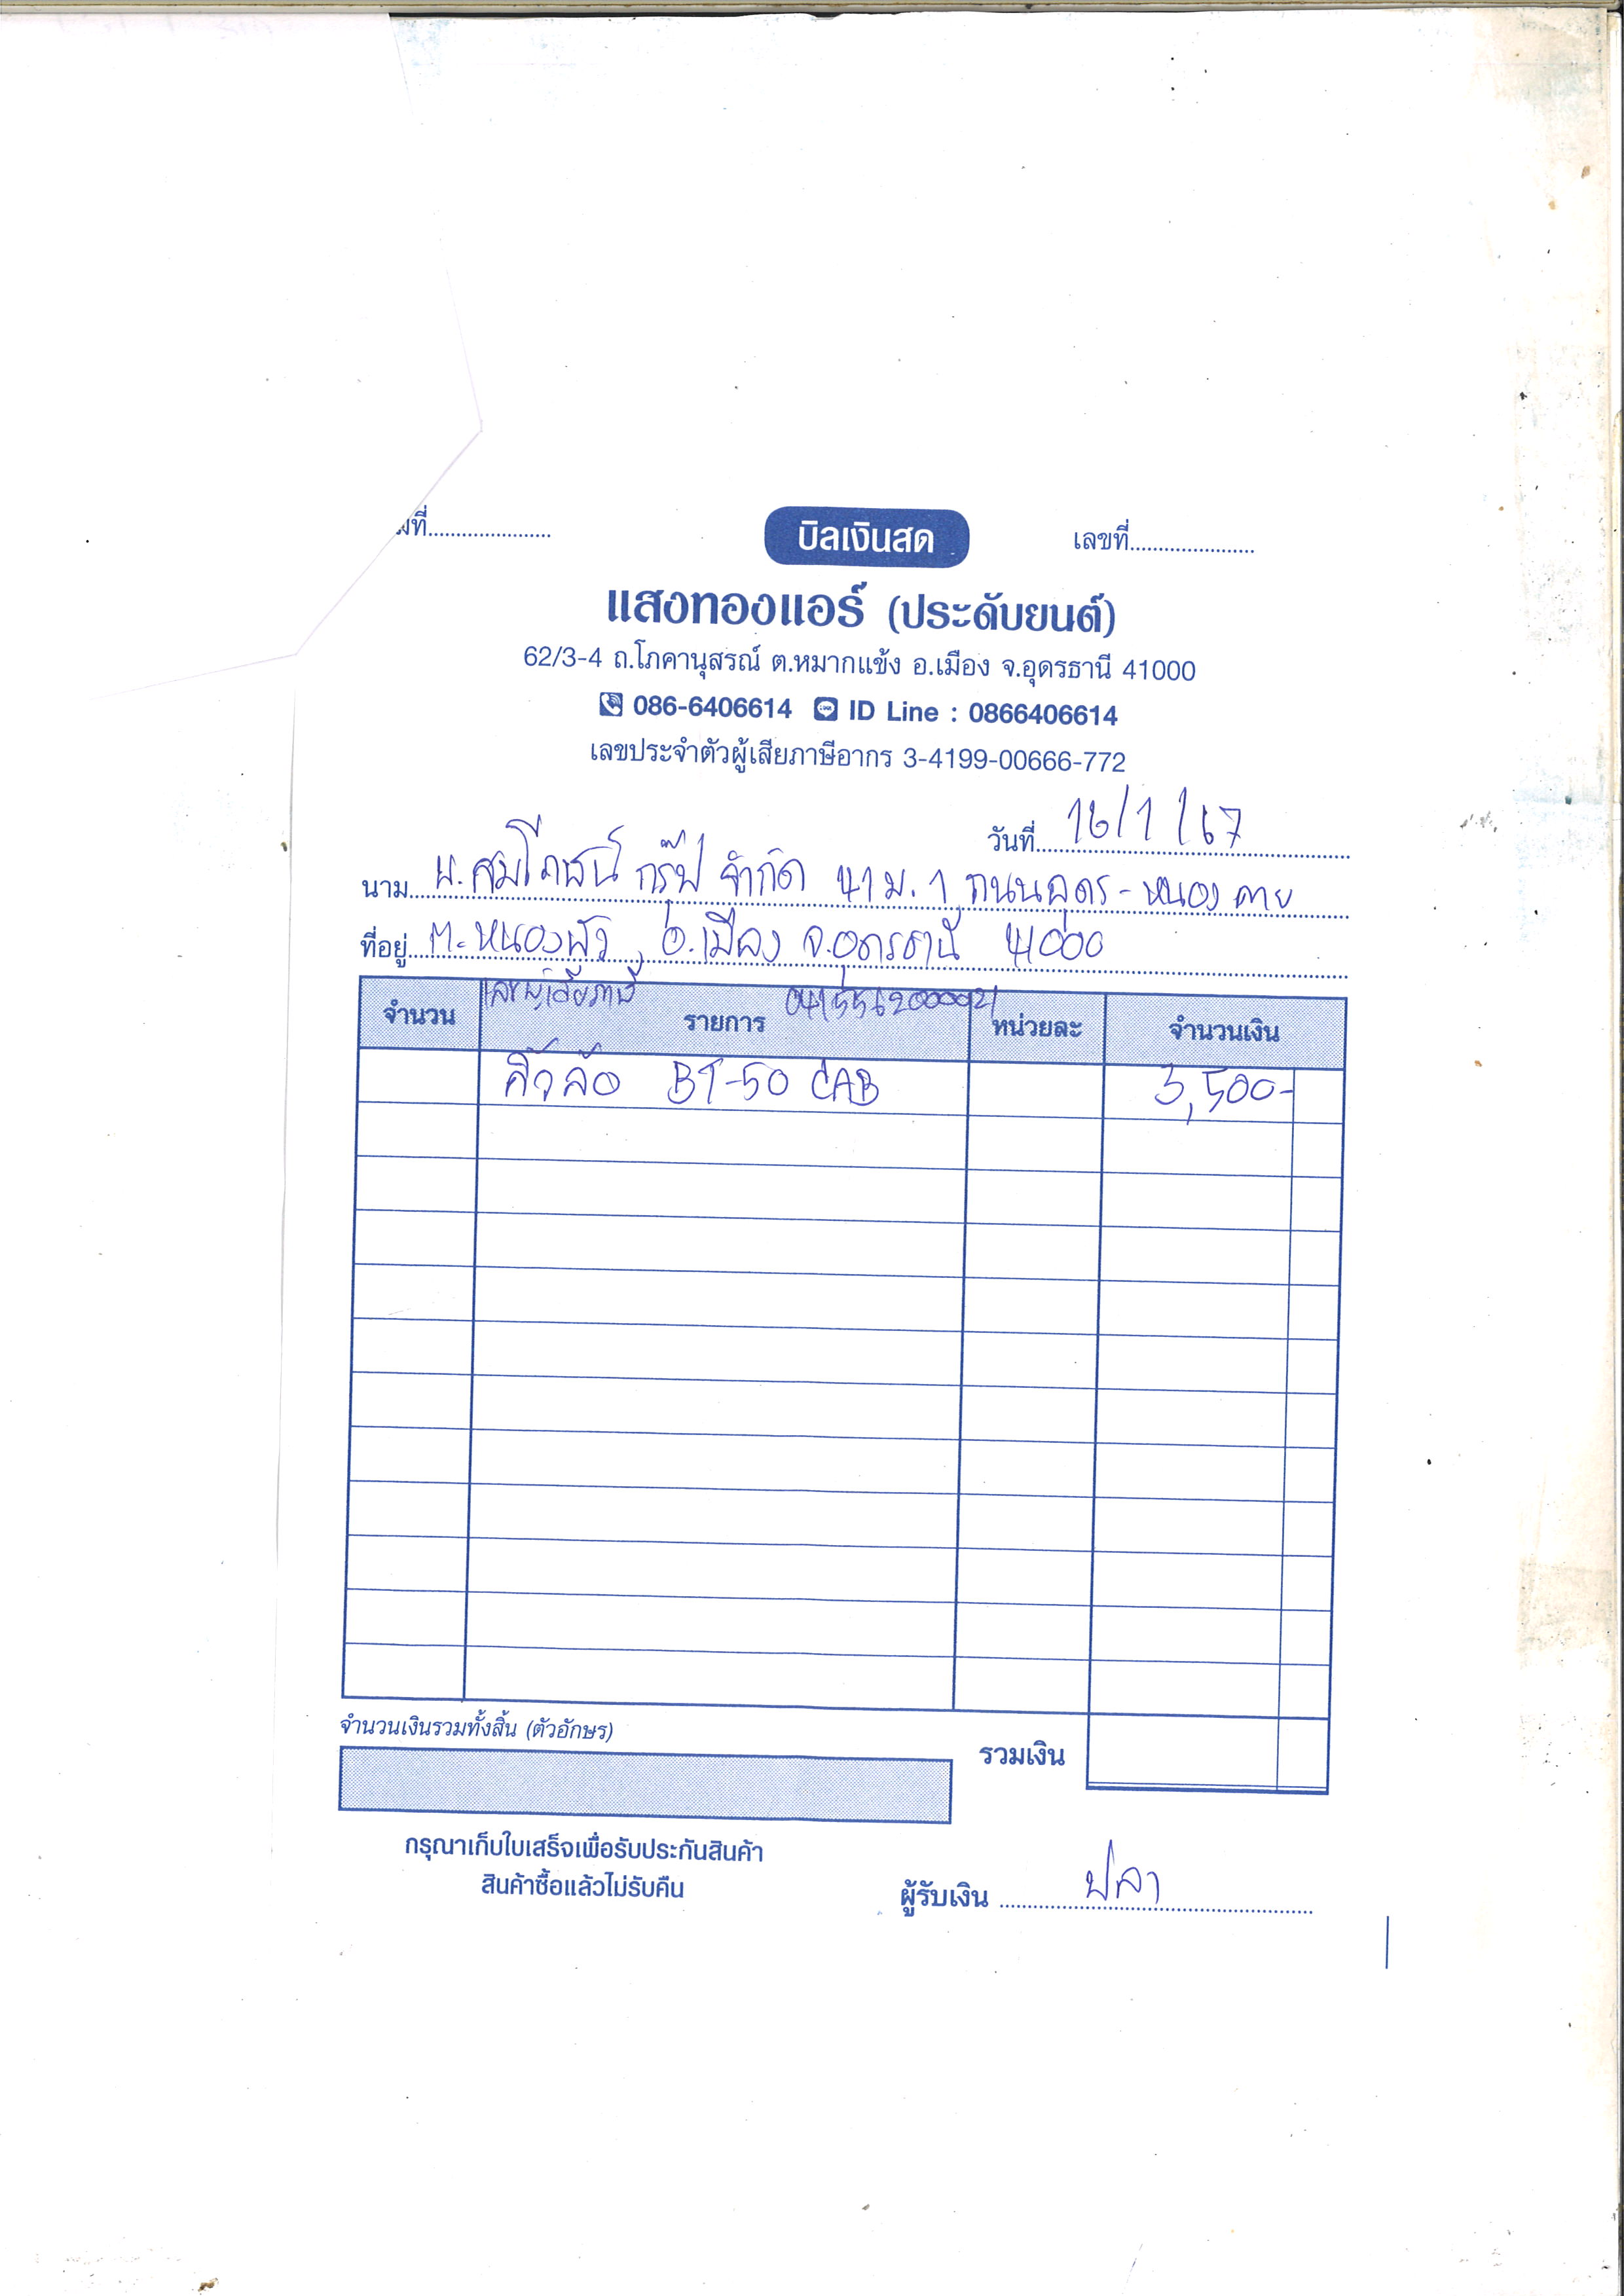 มที่..................... บิลเงินสด เลขที่.....................
แสงทองแอร์ (ประดับยนต์)
62/3-4 ถ.โภคานุสรณ์ ต.หมากแข้ง อ.เมือง จ.อุดรธานี 41000
086-6406614 ID Line : 0866406614
เลขประจำตัวผู้เสียภาษีอากร 3-4199-00666-772
วันที่ 16/1/67
นาม บ. สมโภชน์ กรุ๊ป จำกัด 41 ม.1 ถนนอุดร-หนองคาย
ที่อยู่ ต.หนองบัว อ.เมือง จ.อุดรธานี 41000
เลขผู้เสียภาษี
จำนวน รายการ หน่วยละ จำนวนเงิน
คิ้วล้อ BT-50 CAB 3,500-
จำนวนเงินรวมทั้งสิ้น (ตัวอักษร)
รวมเงิน
กรุณาเก็บใบเสร็จเพื่อรับประกันสินค้า
สินค้าซื้อแล้วไม่รับคืน
ผู้รับเงิน ปลา